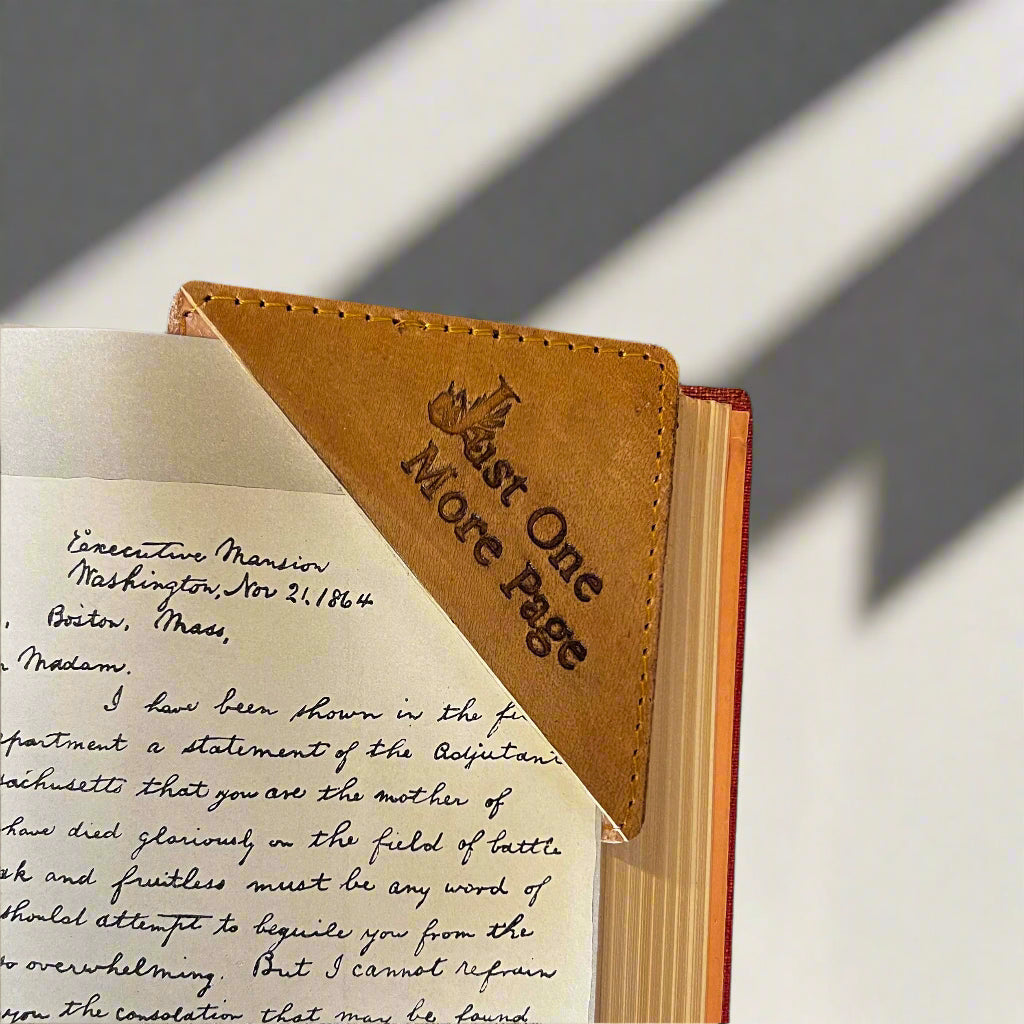 Just One
More Page
Executive Mansion
Washington, Nov 21, 1864
Boston, Mass,
Madam.
I have been shown in the
a statement of the
that you are the mother of
have died gloriously on the field of battle
and fruitless must be any word of
should attempt to beguile you from the
so overwhelming. But I cannot refrain
you the consolation that may be found